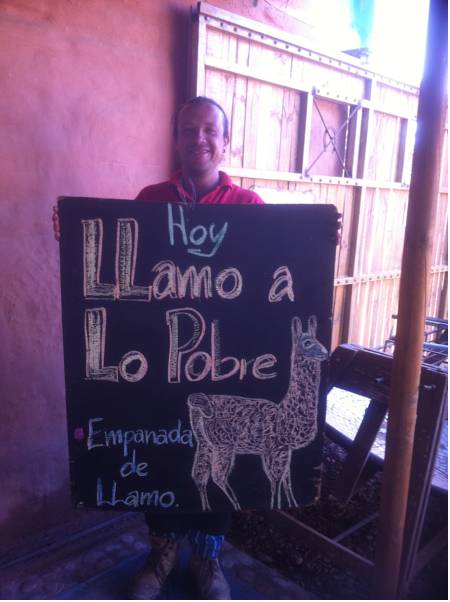 Hoy
LLamo a
Lo Pobre
Empanada
de
LLamo.